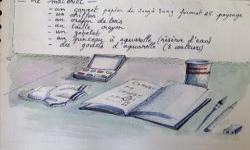 matériel
- un carnet papier de 200g format A5 paysage
- un chiffon
- un crayon de bois
- un taille crayon
- un gobelet
- un pinceau à aquarelle (réserve d'eau)
- des godets d'aquarelle (2 couleurs)